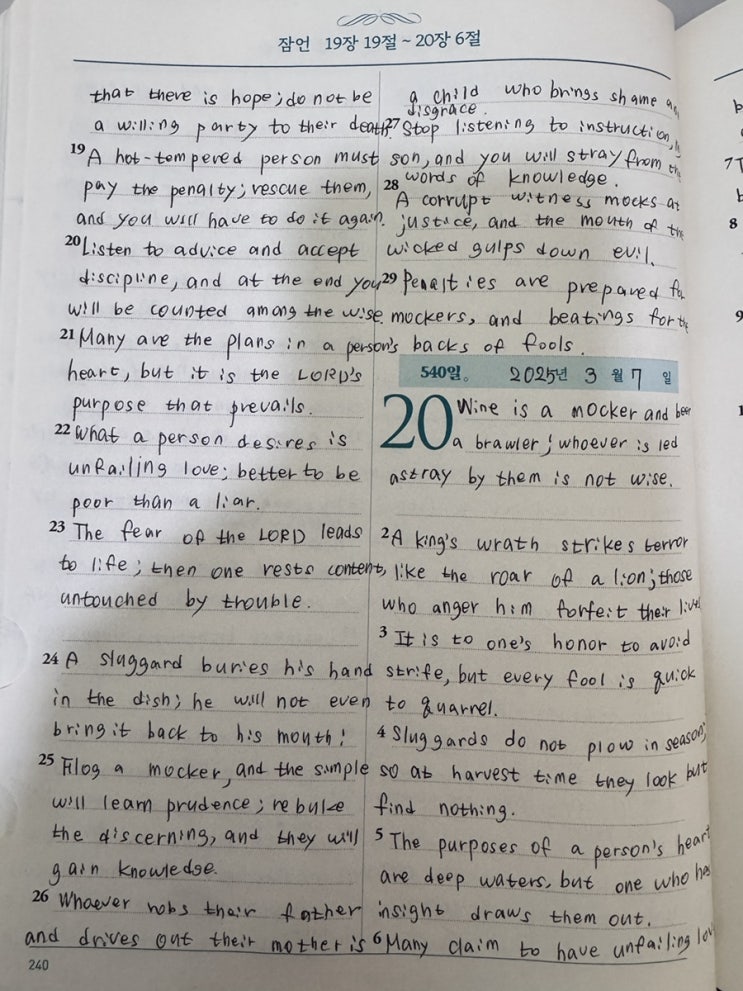 잠언 19장 19절 ~ 20장 6절
that there is hope; do not be
a willing party to their death.
19 A hot-tempered person must
pay the penalty; rescue them,
and you will have to do it again.
20 Listen to advice and accept
discipline, and at the end you
will be counted among the wise.
21 Many are the plans in a person's
heart, but it is the LORD's
purpose that prevails.
22 What a person desires is
unfailing love; better to be
poor than a liar.
23 The fear of the LORD leads
to life; then one rests content,
untouched by trouble.
24 A sluggard buries his hand
in the dish; he will not even
bring it back to his mouth!
25 Flog a mocker, and the simple
will learn prudence; rebuke
the discerning, and they will
gain knowledge.
26 Whoever robs their father
and drives out their mother is
240
a child who brings shame
disgrace.
27 Stop listening to instruction,
son, and you will stray from the
words of knowledge.
28 A corrupt witness mocks at
justice, and the mouth of the
wicked gulps down evil.
29 Penalties are prepared for
mockers, and beatings for the
backs of fools.
540일。 2025년 3월 7일
20 Wine is a mocker and beer
a brawler; whoever is led
astray by them is not wise.
2 A king's wrath strikes terror
like the roar of a lion; those
who anger him forfeit their
3 It is to one's honor to avoid
strife, but every fool is quick
to quarrel.
4 Sluggards do not plow in season;
so at harvest time they look but
find nothing.
5 The purposes of a person's heart
are deep waters, but one who has
insight draws them out.
6 Many claim to have unfailing
7
8
9